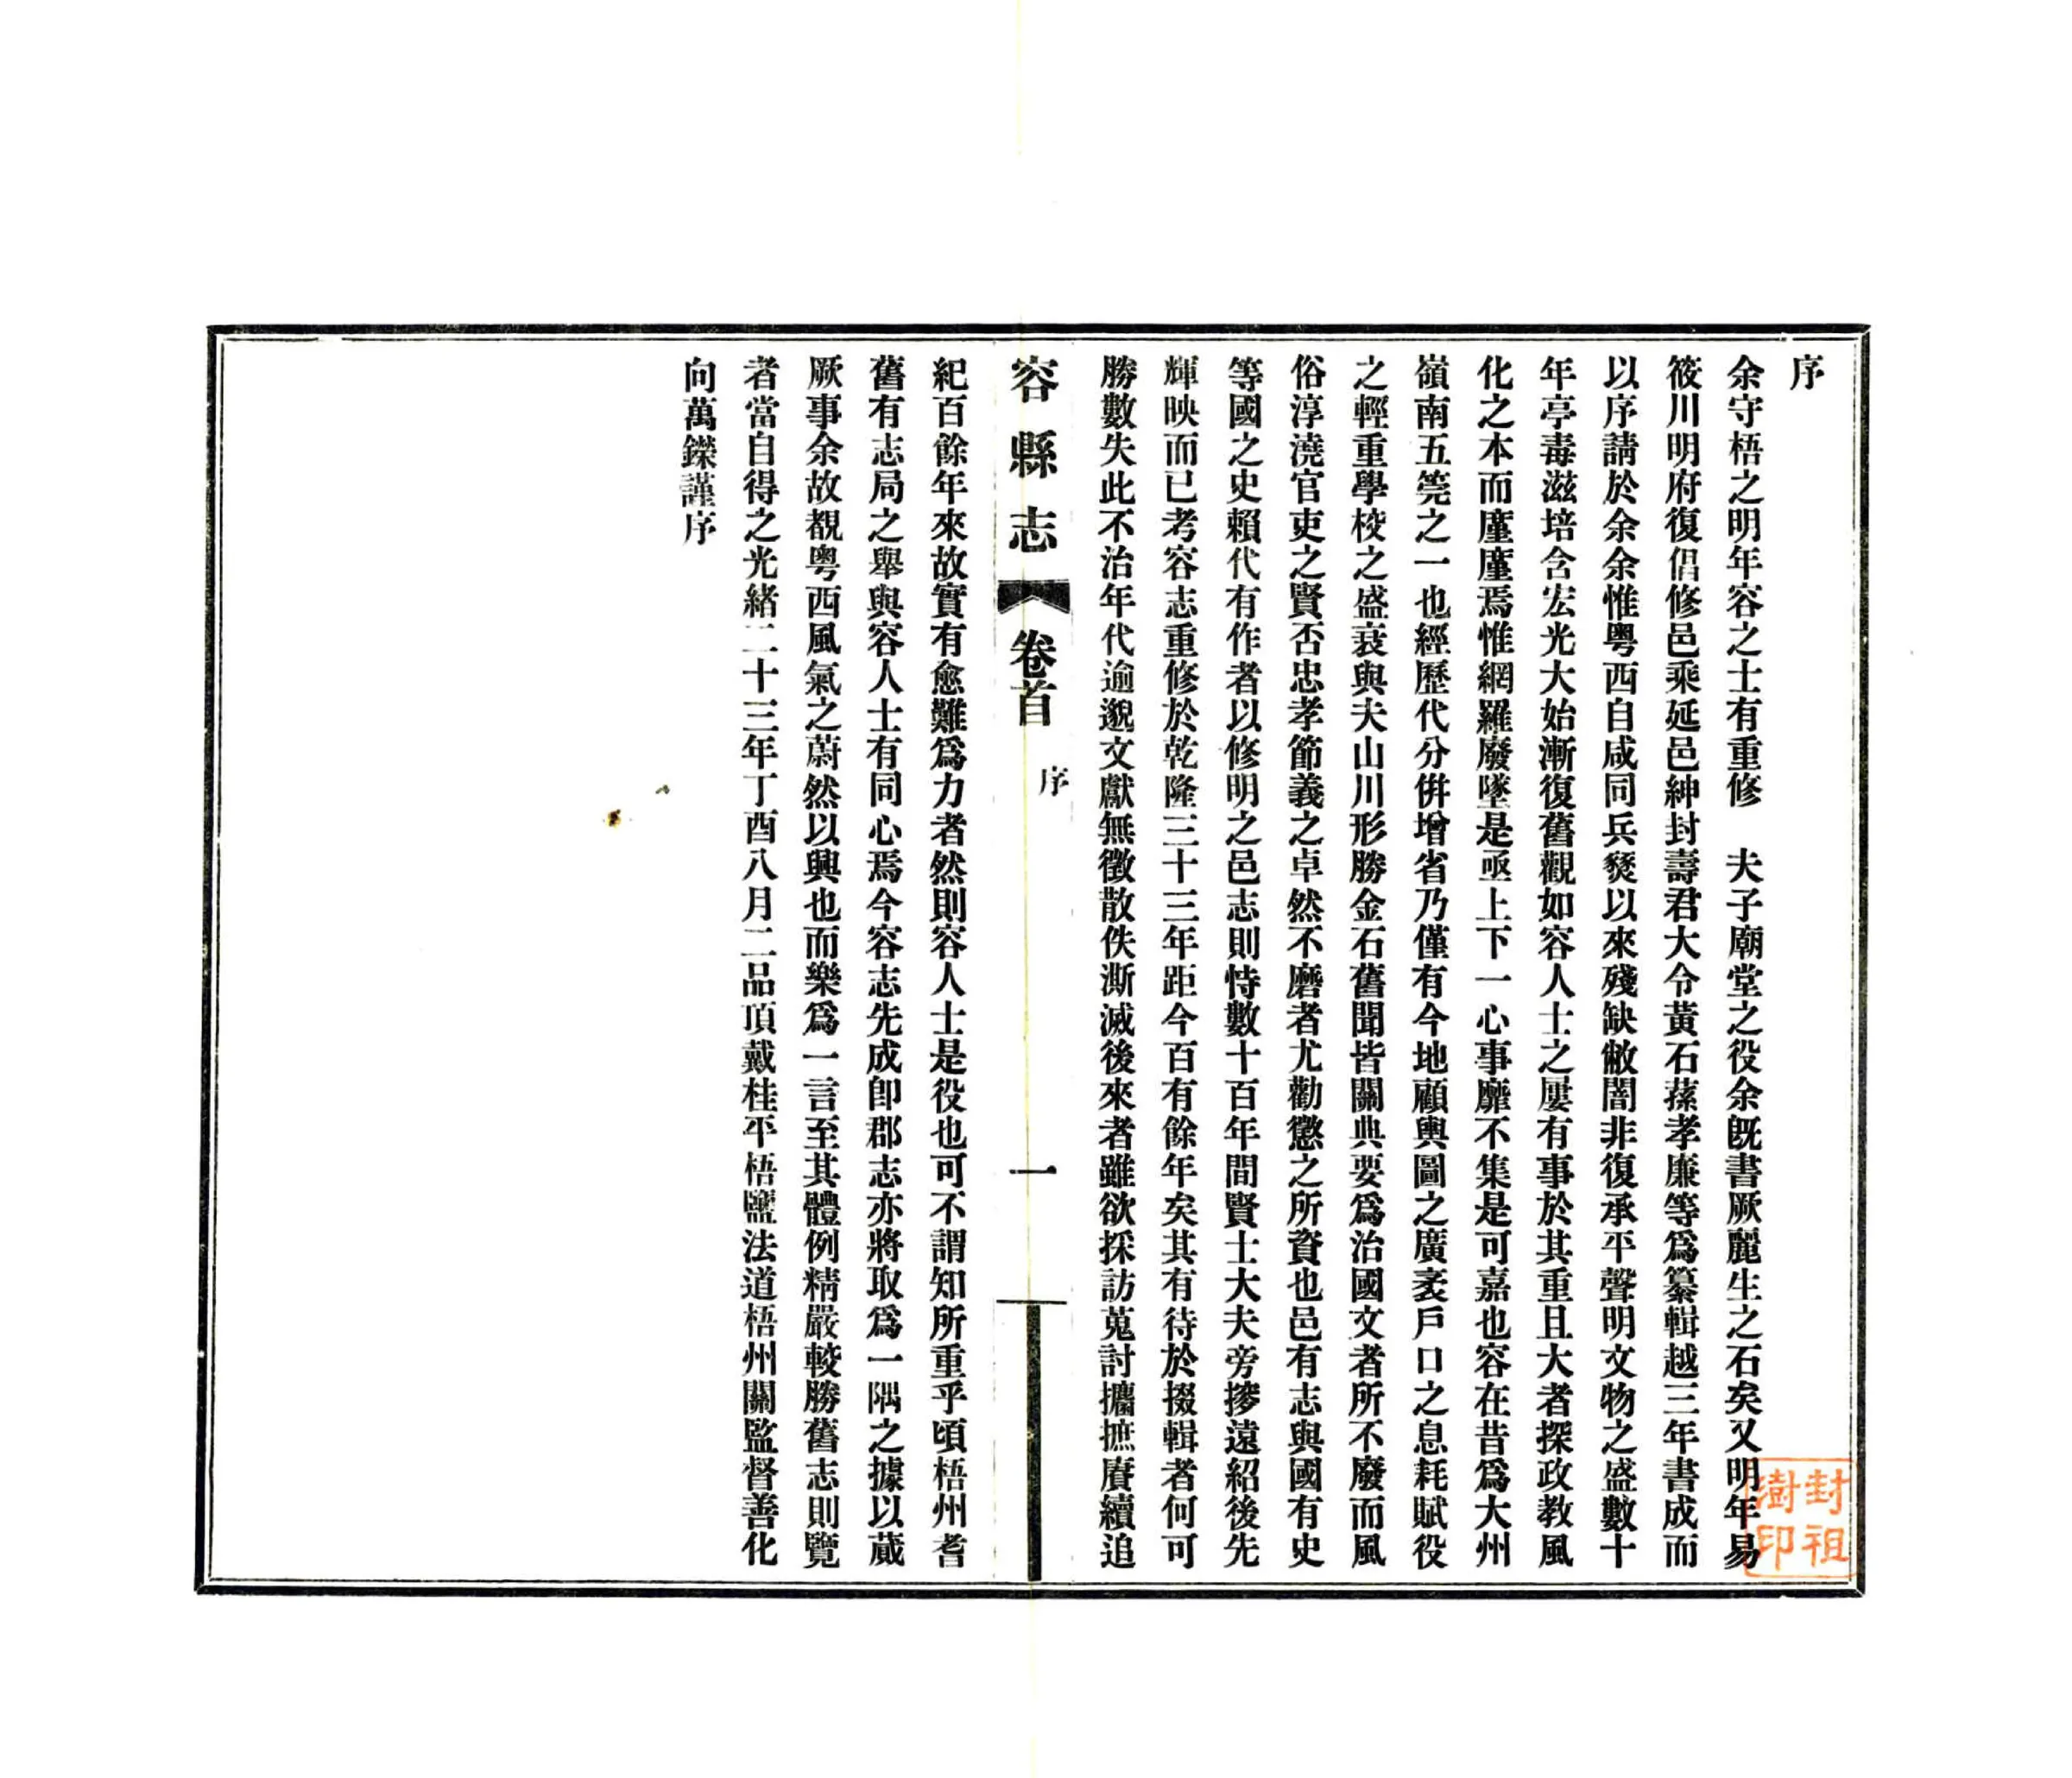 序
余守梧之明年容之士有重修　夫子廟堂之役余旣書厥麗生之石矣又明年易
筱川明府復倡修邑乘延邑紳封壽君大令黃石蓀孝廉等爲纂輯越三年書成而
以序請於余余惟粤西自咸同兵燹以來殘缺敝闇非復承平聲明文物之盛數十
年亭毒滋培含宏光大始漸復舊觀如容人士之屢有事於其重且大者探政教風
化之本而廑廑焉惟網羅廢墜是亟上下一心事靡不集是可嘉也容在昔爲大州
嶺南五筦之一也經歷代分倂增省乃僅有今地顧輿圖之廣袤戶口之息耗賦役
之輕重學校之盛衰與夫山川形勝金石舊聞皆關典要爲治國文者所不廢而風
俗淳澆官吏之賢否忠孝節義之卓然不磨者尤勸懲之所資也邑有志與國有史
等國之史賴代有作者以修明之邑志則恃數十百年間賢士大夫旁摉遠紹後先
輝映而已考容志重修於乾隆三十三年距今百有餘年矣其有待於掇輯者何可
勝數失此不治年代逾邈文獻無徵散佚澌滅後來者雖欲採訪蒐討攟摭賡續追
容縣志
卷首
序
一
紀百餘年來故實有愈難爲力者然則容人士是役也可不謂知所重乎頃梧州耆
舊有志局之舉與容人士有同心焉今容志先成卽郡志亦將取爲一隅之據以蕆
厥事余故覩粤西風氣之蔚然以興也而樂爲一言至其體例精嚴較勝舊志則覽
者當自得之光緒二十三年丁酉八月二品頂戴桂平梧鹽法道梧州關監督善化
向萬鑅謹序
封祖
澍印